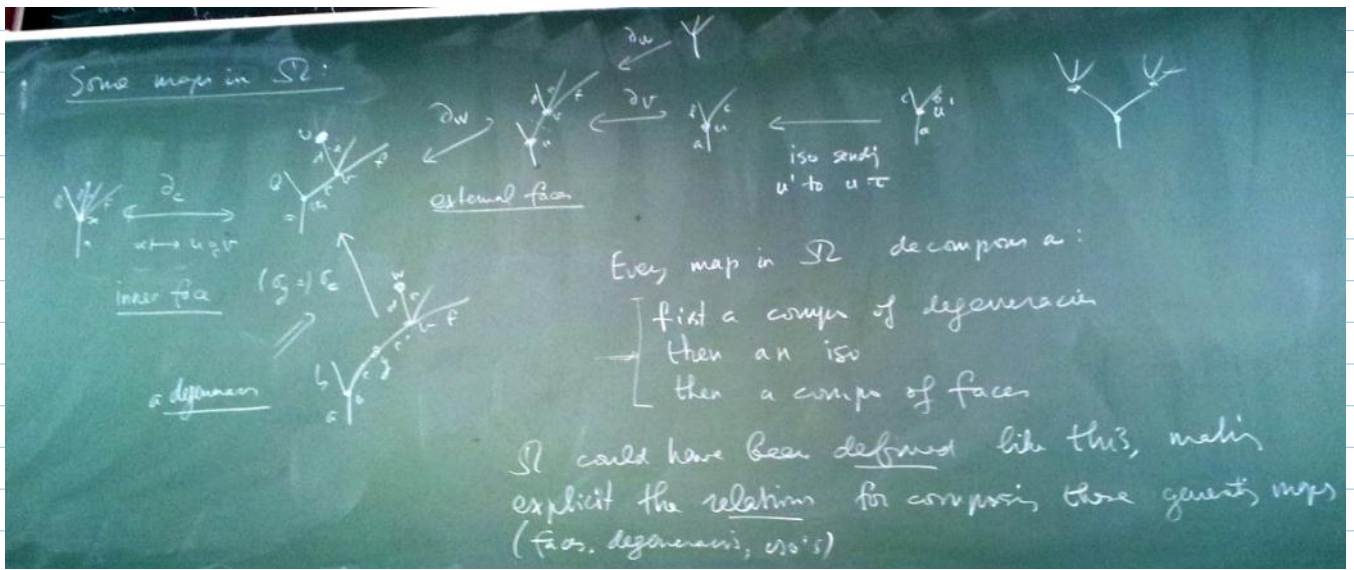 Some maps in Ω:
∂w
∂w
∂v
∂c
iso sending
u' to u·τ
external faces
x ↦ u ∘c v
inner face
(σy =) σc
a degeneracy
Every map in Ω decomposes as:
first a compo of degeneracies
then an iso
then a compo of faces
Ω could have been defined like this, making
explicit the relations for composing those generating maps
(faces, degeneracies, iso's)